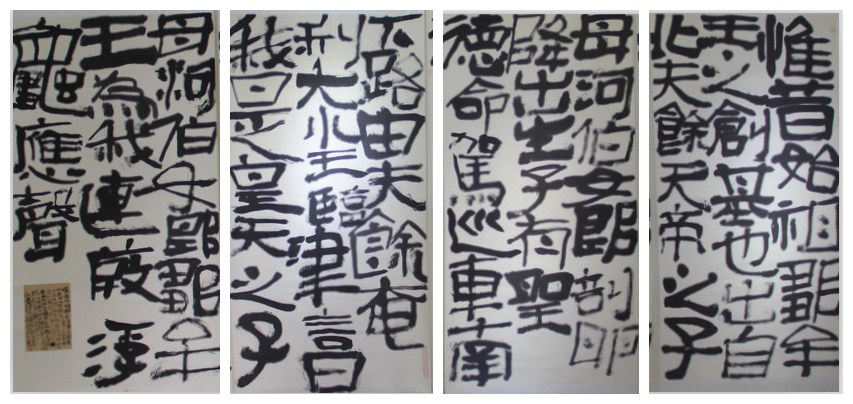 惟昔始祖鄒牟
王之創基也出自
北夫餘天帝之子
母河伯女郎剖卵
降出生子有聖
德命駕巡車南
下路由夫餘奄
利大水王臨津言曰
我是皇天之子
母河伯女郎鄒牟
王為我連葭浮
龜應聲